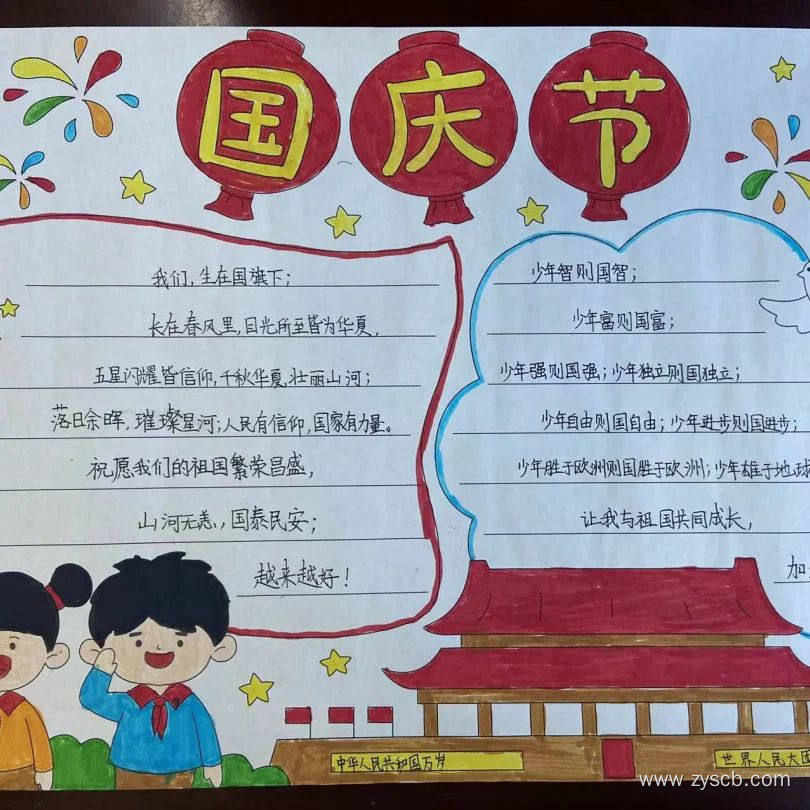 国庆节
我们,生在国旗下;
长在春风里,目光所至皆为华夏,
五星闪耀皆信仰,千秋华夏,壮丽山河;
落日余晖,璀璨星河;人民有信仰,国家有力量。
祝愿我们的祖国繁荣昌盛,
山河无恙,,国泰民安;
越来越好!
少年智则国智;
少年富则国富;
少年强则国强;少年独立则国独立;
少年自由则国自由;少年进步则国进步;
少年胜于欧洲则国胜于欧洲;少年雄于地球
让我与祖国共同成长,
加
中华人民共和国万岁
世界人民大团
www.zyscb.com